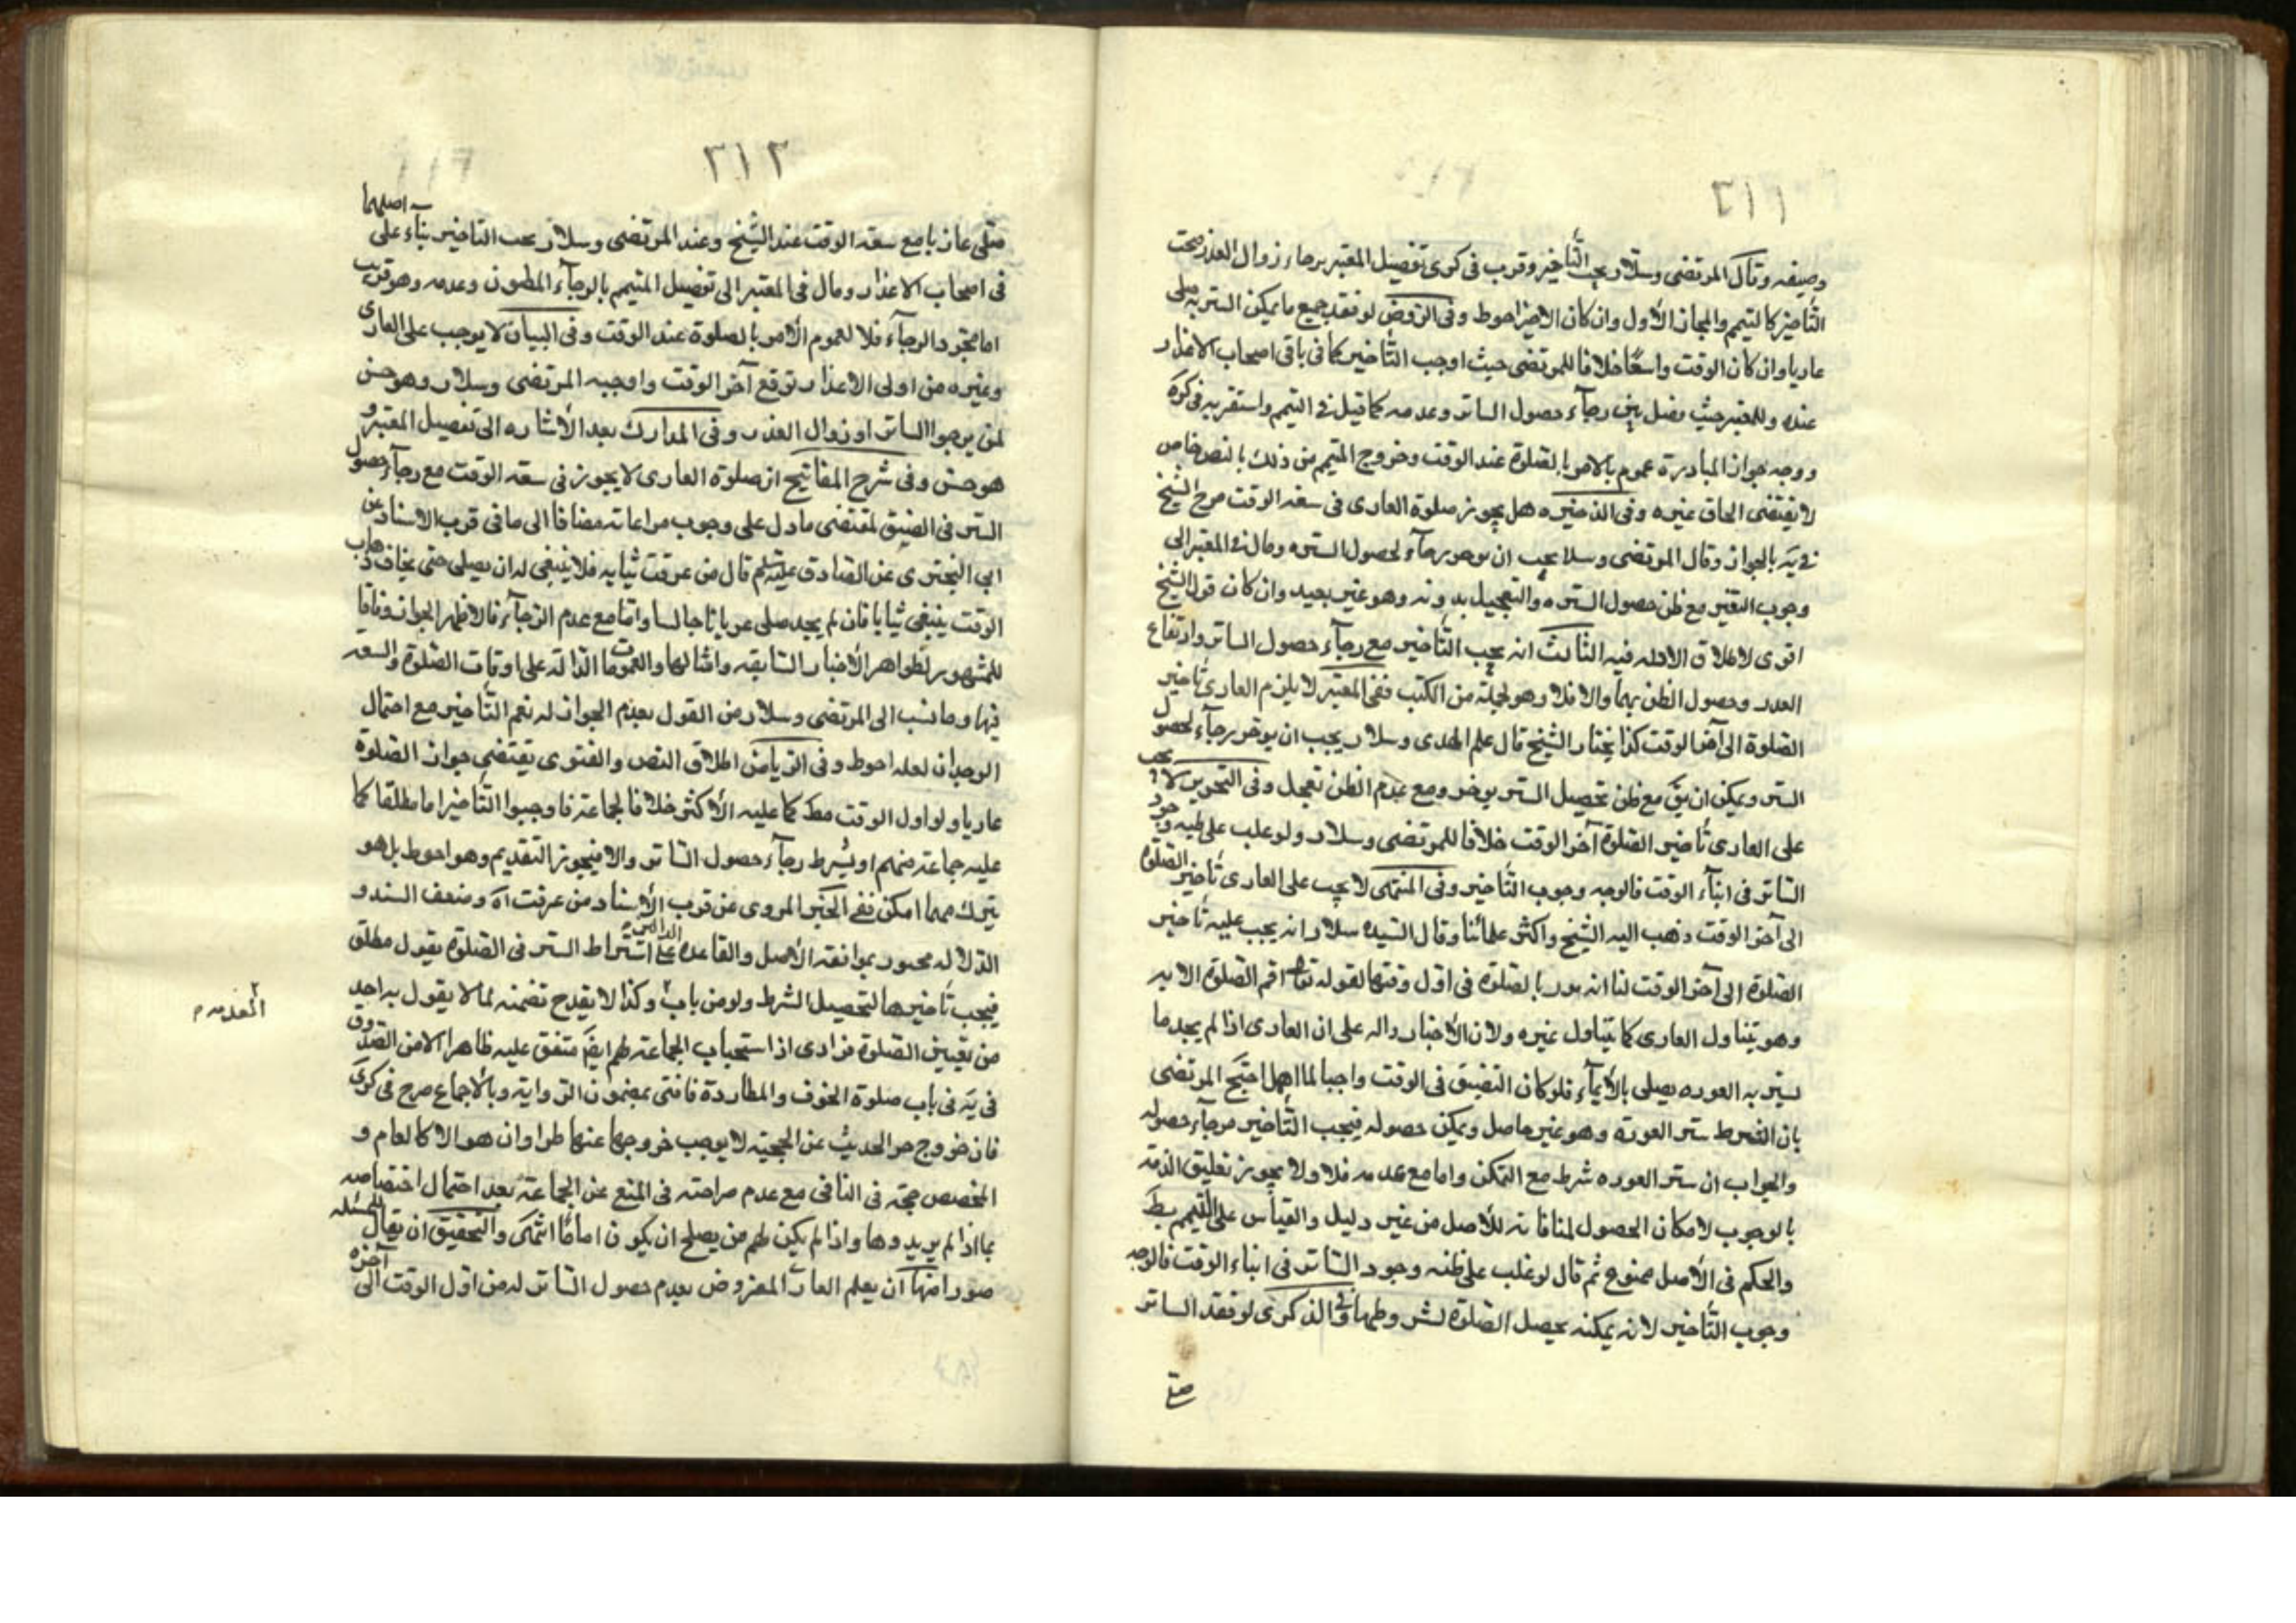 ٢١١
وضيقه وقال المرتضى وسلار يجب التأخير وقرب في كرى تفصيل المعتبر برجاء زوال العذر صحت
التأخير كالتيمم والمجاز الأول وان كان الاخير احوط وفي الروض لو فقد جميع ما يمكن الستر به صلى
عاريا وان كان الوقت واسعًا خلافا للمرتضى حيث اوجب التأخير كما في باقي اصحاب الاعذار
عنده وللمعتبر حيث فصل بين رجآء حصول الساتر وعدمه كما قيل في التيمم واستقربه في كرة
ووجه جواز المبادرة عموم بالامر بالصلوة عند الوقت وخروج المتيمم من ذلك بالنص خاص
لا يقتضى الحاق غيره وفي الذخيره هل يجوز صلوة العارى في سعة الوقت صرح الشيخ
في يَه بالجواز وقال المرتضى وسلار يجب ان يوخر رجآء لحصول الستره ومال في المعتبر الى
وجوب التاخير مع ظن حصول الستره والتعجيل بدونه وهو غير بعيد وان كان قول الشيخ
اقوى لاطلاق الادله فيه الثالث انه يجب التأخير مع رجآء حصول الساتر وارتفاع
العذر وحصول الظن بهما والا فلا وهو لجملة من الكتب ففي المعتبر لا يلزم العارى تأخير
الصلوة الى آخر الوقت كذا يختار الشيخ قال علم الهدى وسلار يجب ان يوخر رجآء لحصول
الستر ويمكن ان يقَ مع ظن تحصيل الستر يوخر ومع عدم الظن تعجل وفي التحرير لا يجب
على العارى تأخير الصلوة آخر الوقت خلافا للمرتضى وسلار ولو غلب على ظنه وجود
الساتر في اثنآء الوقت فالوجه وجوب التأخير وفي المنتهى لا يجب على العارى تأخير الصلوة
الى آخر الوقت ذهب اليه الشيخ واكثر علمائنا وقال السيد وسلار انه يجب عليه تأخير
الصلوة الى آخر الوقت لنا انه مور بالصلوة في اول وقتها لقوله تعالى اقم الصلوة الايه
وهو يتناول العارى كما يتناول غيره ولان الأخبار داله على ان العارى اذا لم يجد ما
يستر به العوره يصلى بالأيمآء فلو كان التضيق في الوقت واجبا لما اهمل احتج المرتضى
بان الشرط ستر العورة وهو غير حاصل ويمكن حصوله فيجب التأخير مرجآء حصوله
والجواب ان ستر العوره شرط مع التمكن واما مع عدمه فلا ولا يجوز تعليق الذمة
بالوجوب لامكان الحصول لمنافاته للأصل من غير دليل والقياس على التيمم بط
والحكم في الأصل ممنوع ثم قال لو غلب على ظنه وجود الساتر في اثناء الوقت فالوجه
وجوب التأخير لانه يمكنه تحصيل الصلوة بشروطها وفي الذكرى لو فقد الساتر
صلى
٢١٢
صلى عاريا مع سعة الوقت عند الشيخ وعند المرتضى وسلار يجب التاخير بناء على اصلهما
في اصحاب الاعذار ومال في المعتبر الى تفصيل المتيمم بالرجآء المظنون وعدمه وهو قريب
اما مجرد الرجآء فلا لعموم الأمر بالصلوة عند الوقت وفي البيان لا يوجب على العارى
وغيره من اولى الاعذار توقع آخر الوقت واوجبه المرتضى وسلار وهو حسن
لمن يرجوا الساتر او زوال العذر وفي المدارك بعد الأشاره الى تفصيل المعتبر و
هو حسن وفي شرح المفاتيح ان صلوة العارى لا يجوز في سعة الوقت مع رجآء حصول
الستر في الضيق لمقتضى ما دل على وجوب مراعاته مضافا الى ما في قرب الاسناد عن
ابي البخترى عن الصادق عليه السلم قال من غرقت ثيابه فلا ينبغى له ان يصلى حتى يخاف ذهاب
الوقت يبتغى ثيابا فان لم يجد صلى عريانا جالسا واما مع عدم الرجآء فالاظهر الجواز وفاقا
للمشهور لظواهر الأخبار السابقه وامثالها والعمومات الدالة على اوقات الصلوة والسعه
فيها وما نسب الى المرتضى وسلار من القول بعدم الجواز له نعم التأخير مع احتمال
الوجدان لعله احوط وفي الرياض اطلاق النص والفتوى يقتضى جواز الصلوة
عاريا ولو اول الوقت مط كما عليه الأكثر خلافا لجماعة فاوجبوا التأخير اما مطلقا كما
عليه جماعة منهم او بشرط رجآء حصول الساتر والا فيجوز التقديم وهو احوط بل هو
يترك مهما امكن ففي الخبر المروى عن قرب الأسناد من غرقت آه وضعف السند و
الدلاله مجبور بموافقة الأصل والقاعده الدالة على اشتراط الستر في الصلوة بقول مطلق
فيجب تأخيرها لتحصيل الشرط ولو من باب وكذا لا يقدح تضمنه لما لا يقول به احد
المقدمه م
من تعيين الصلوة فرادى اذا استحباب الجماعة لهم ايضَ متفق عليه ظاهرا الا من الصدوق
في يَه في باب صلوة الخوف والمطاردة فافتى بمضمون الرواية وبالأجماع صرح في كرى
فان خروج جزء الحديث عن الحجية لا يوجب خروجها عنها طرا وان هو الا كالعام و
المخصص حجة في الباقى مع عدم صراحته في المنع عن الجماعة بعد احتمال اختصاصه
بما اذا لم يريدوها واذا لم يكن لهم من يصلح ان يكون اماما انتهى والتحقيق ان يقال للمسئله
صورا منها ان يعلم العارى المفروض بعدم حصول الساتر له من اول الوقت الى آخره